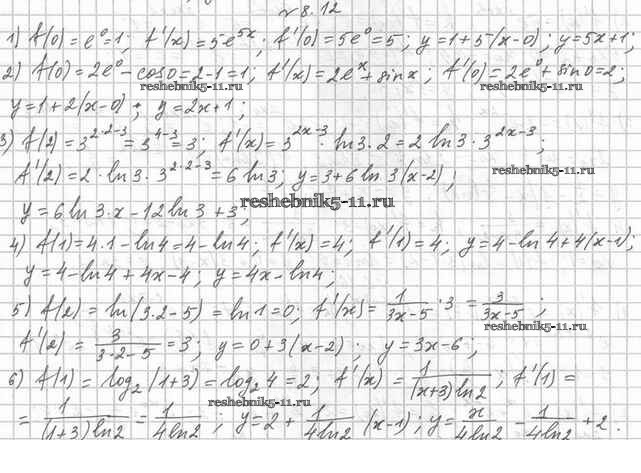 №8.12
1) f(0)=e⁰=1; f'(x)=5e⁵ˣ; f'(0)=5e⁰=5; y=1+5(x-0); y=5x+1;
2) f(0)=2e⁰-cos0=2-1=1; f'(x)=2eˣ+sinx; f'(0)=2e⁰+sin0=2;
reshebnik5-11.ru reshebnik5-11.ru
y=1+2(x-0); y=2x+1;
3) f(2)=3^(2·2-3)=3^(4-3)=3; f'(x)=3^(2x-3)·ln3·2=2ln3·3^(2x-3);
f'(2)=2·ln3·3^(2·2-3)=6ln3; y=3+6ln3(x-2);
reshebnik5-11.ru
reshebnik5-11.ru
y=6ln3·x-12ln3+3;
4) f(1)=4·1-ln4=4-ln4; f'(x)=4; f'(1)=4; y=4-ln4+4(x-1);
y=4-ln4+4x-4; y=4x-ln4;
reshebnik5-11.ru
5) f(2)=ln(3·2-5)=ln1=0; f'(x)=1/(3x-5)·3=3/(3x-5);
reshebnik5-11.ru
f'(2)=3/(3·2-5)=3; y=0+3(x-2); y=3x-6;
6) f(1)=log₂(1+3)=log₂4=2; f'(x)=1/((x+3)ln2); f'(1)=
reshebnik5-11.ru
=1/((1+3)ln2)=1/(4ln2); y=2+1/(4ln2)(x-1); y=x/(4ln2)-1/(4ln2)+2.